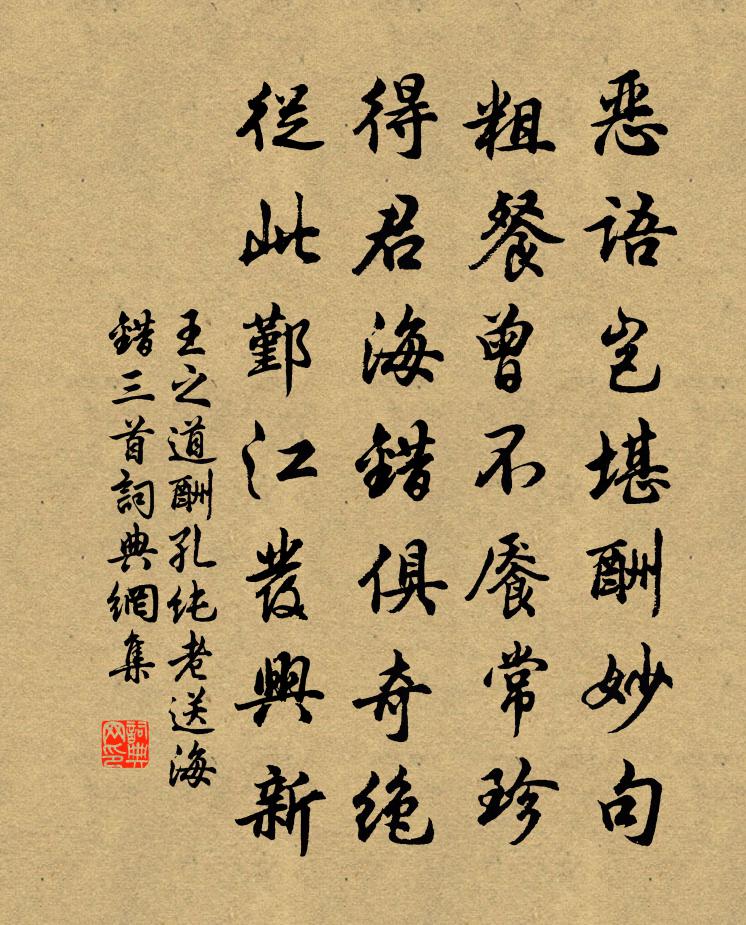 惡語豈堪酬妙句
粗餐曾不饜常珍
得君海錯俱奇絶
從此鄞江發興新
王之道酬孔純老送海
錯三首詞典網集
詞典网印